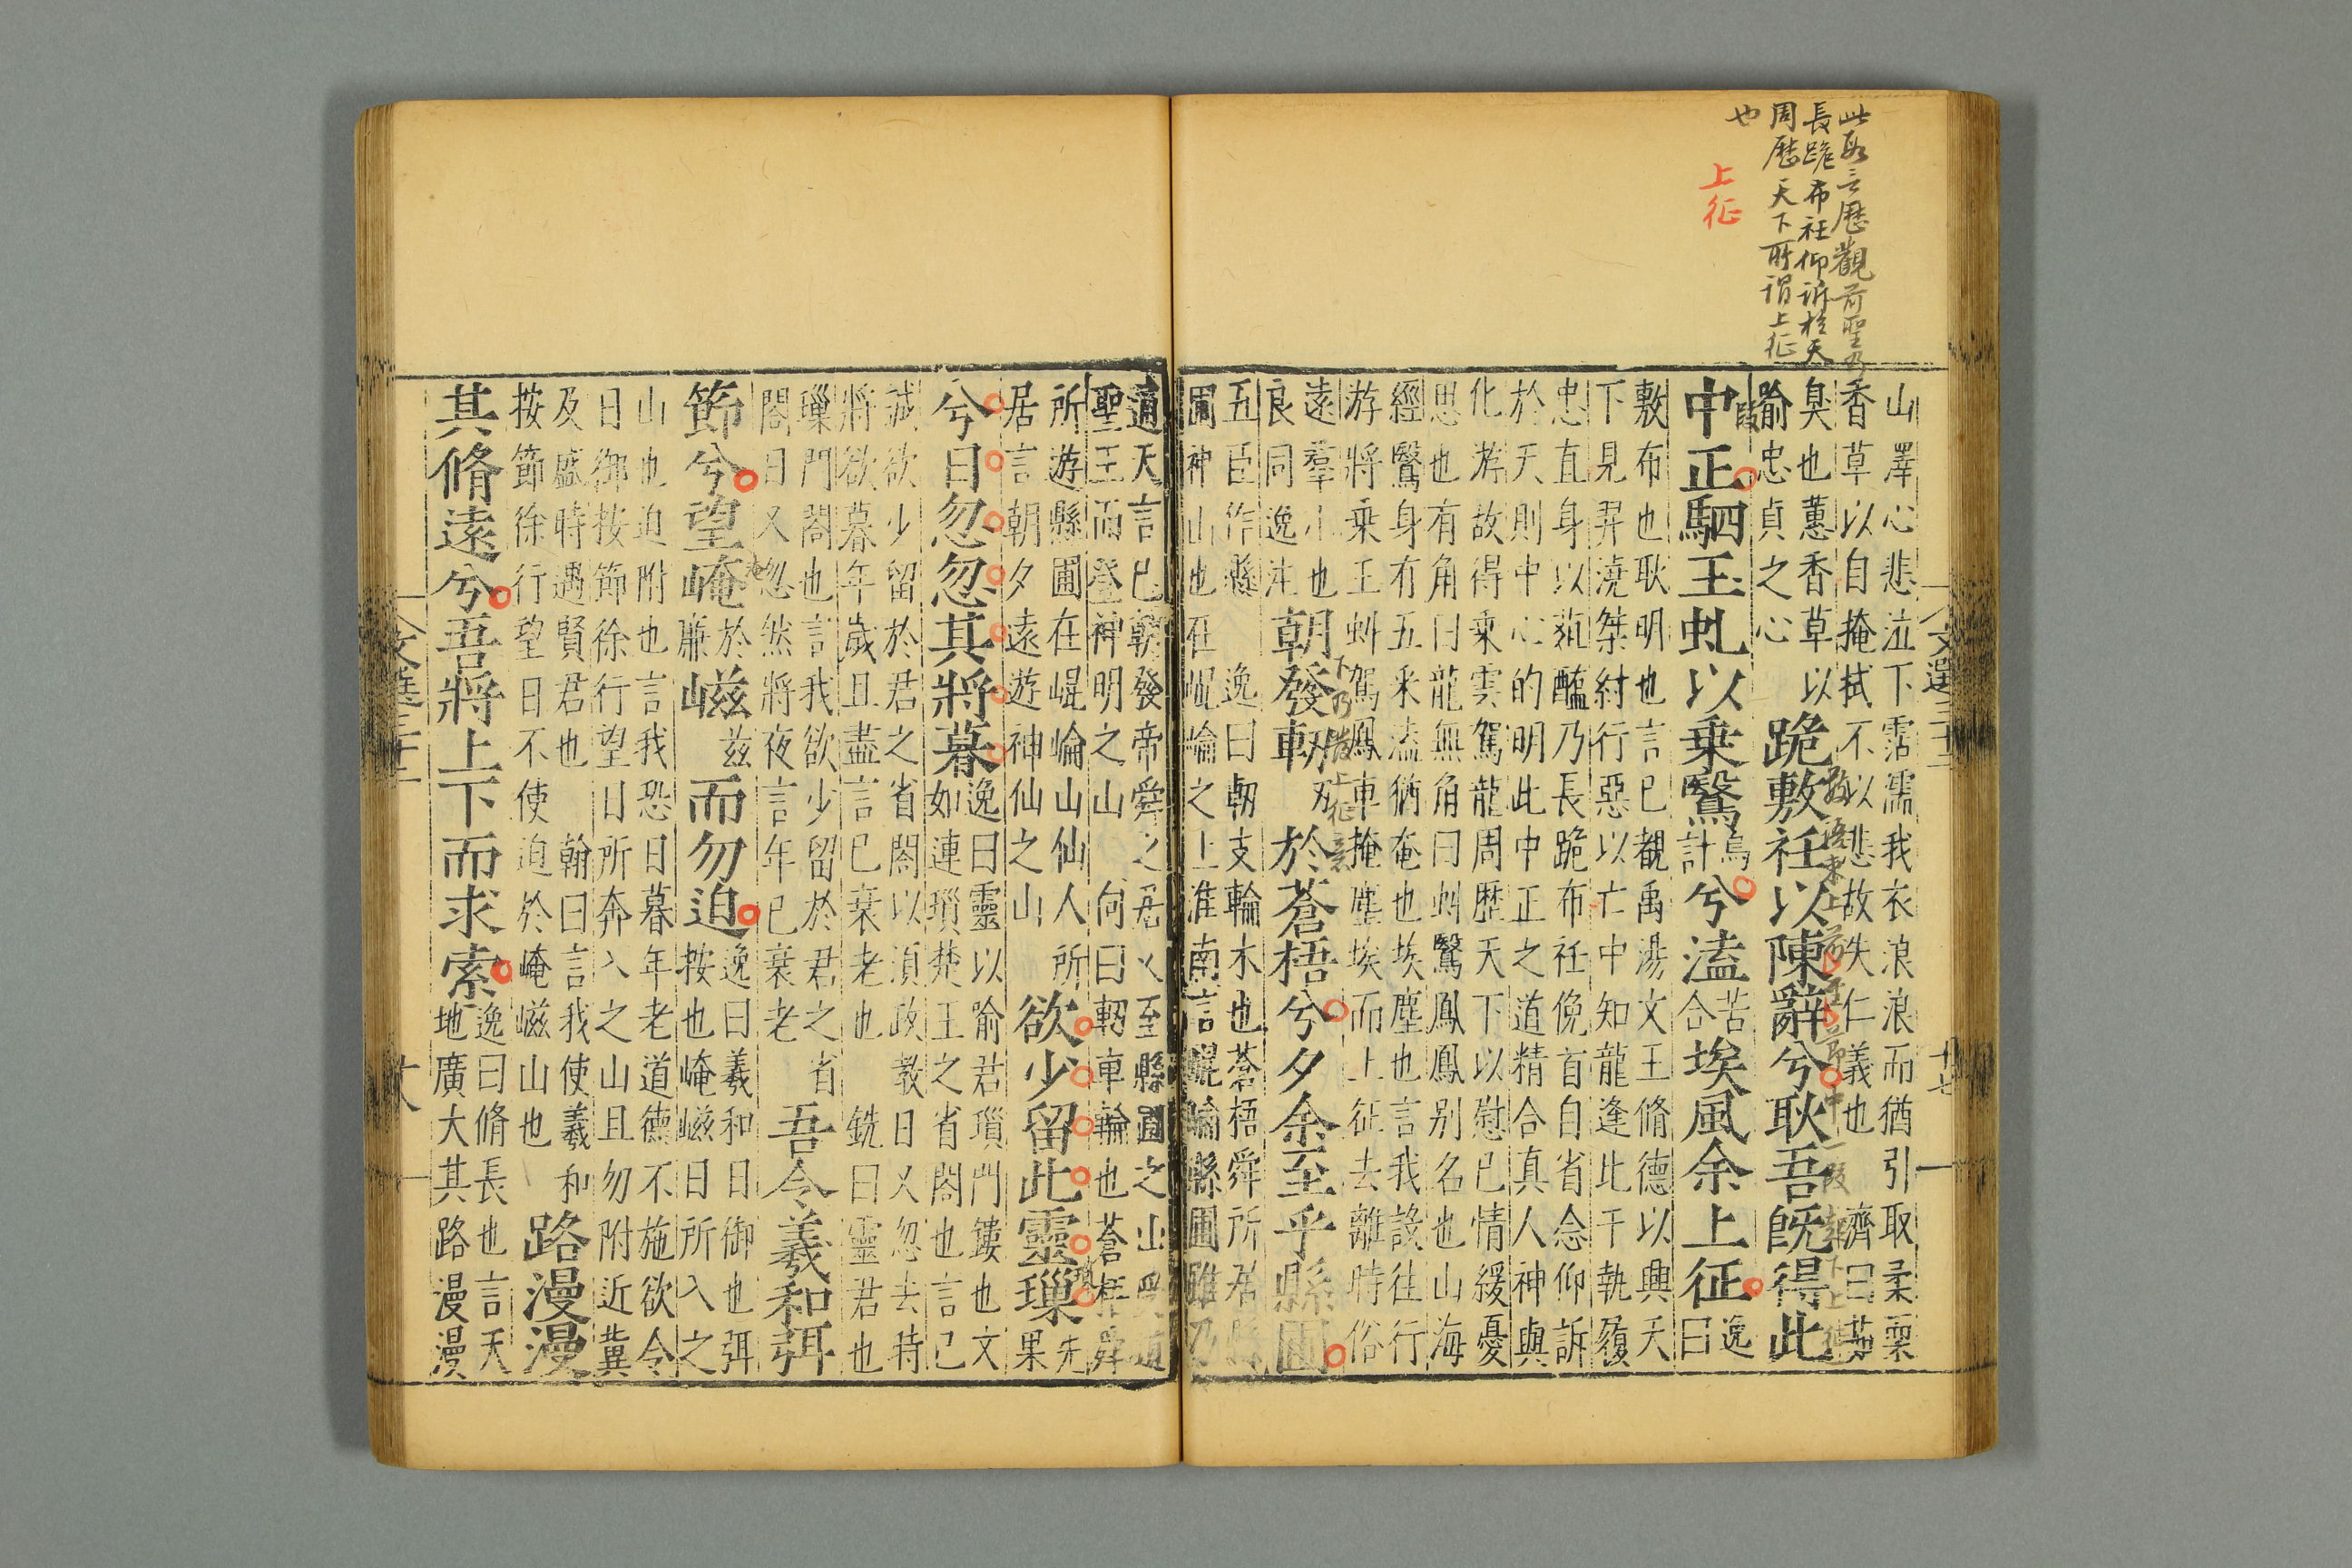 此段言歷觀前聖乃
長跪布衽仰訴於天
周歷天下所謂上征
也
上征
山澤心悲泣下霑濡我衣浪浪而猶引取柔耎
香草以自掩拭不以悲故失仁義也 濟曰茹
臭也蕙香草以
喻忠貞之心
跪敷衽以陳辭兮耿吾既得此
中正駟玉虬以乗鷖
計
兮溘
苦
合
埃風余上征
逸
曰
敷布也耿明也言已覩禹湯文王脩德以興天
下見羿澆桀紂行惡以亡中知龍逢此干執履
忠直身以菹醢乃長跪布衽俛首自省念仰訴
於天則中心的明此中正之道精合真人神與
化游故得乗雲駕龍周歴天下以慰已情緩憂
思也有角曰龍無角曰虯鷖鳳鳳别名也山海
經鷖身有五采溘猶奄也埃塵也言我設往行
游將乗玉虯駕鳳車掩塵埃而上征去離時俗
遠羣小也
良同逸注
朝發軔
刃
於蒼梧兮夕余至乎縣圃
下乃發上征意
五臣作縣
逸曰軔支輪木也蒼梧舜所居縣
圃神山也在崐崘之上淮南言崐崘縣圃雖乃
通天言已朝發帝舜之居夕至縣圃之山受道
聖王而登神明之山 向曰軔車輪也蒼梧舜
所游縣圃在崐崘山仙人所
居言朝夕遠遊神仙之山
欲少留此靈璅
先
果
兮日忽忽其將暮
逸曰靈以喻君瑣門鏤也文
如連瑣楚王之省閤也言已
誠欲少留於君之省閤以須政教日又忽去時
將欲暮年歲且盡言已衰老也 銑曰靈君也
璅門閤也言我欲少留於君之省
閤日又忽然將夜言年已衰老
吾令羲和弭
節兮望崦
於
廉
嵫
兹
而勿迫
逸曰羲和日御也弭
按也崦嵫日所入之
山也迫附也言我恐日暮年老道德不施欲令
日御按節徐行望日所奔入之山且勿附近冀
及盛時遇賢君也 翰曰言我使羲和
按節徐行望日不使迫於崦嵫山也
路漫漫
其脩遠兮吾將上下而求索
逸曰脩長也言天
地廣大其路漫漫
文選三十二
十七
文選三十二
十八